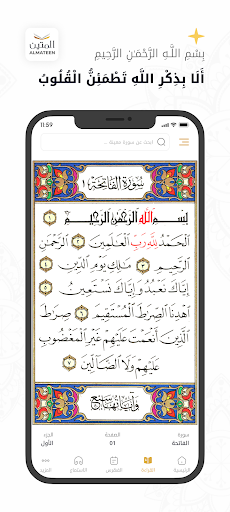 المتين
ALMATEEN
بِسْمِ اللَّهِ الرَّحْمَٰنِ الرَّحِيمِ
أَلَا بِذِكْرِ اللَّهِ تَطْمَئِنُّ الْقُلُوبُ
11:59
ابحث عن سورة معينة..
سُورَةُ الفَاتِحَة
بِسْمِ ٱللَّهِ ٱلرَّحْمَٰنِ ٱلرَّحِيمِ ١
ٱلْحَمْدُ لِلَّهِ رَبِّ ٱلْعَٰلَمِينَ ٢ ٱلرَّحْمَٰنِ
ٱلرَّحِيمِ ٣ مَٰلِكِ يَوْمِ ٱلدِّينِ ٤
إِيَّاكَ نَعْبُدُ وَإِيَّاكَ نَسْتَعِينُ ٥
ٱهْدِنَا ٱلصِّرَٰطَ ٱلْمُسْتَقِيمَ ٦ صِرَٰطَ
ٱلَّذِينَ أَنْعَمْتَ عَلَيْهِمْ غَيْرِ ٱلْمَغْضُوبِ
عَلَيْهِمْ وَلَا ٱلضَّآلِّينَ ٧
وآياتها سبع
سورة الصفحة الجزء
الفاتحة 01 الأول
الرئيسية القراءة الفهرس الاستماع المزيد